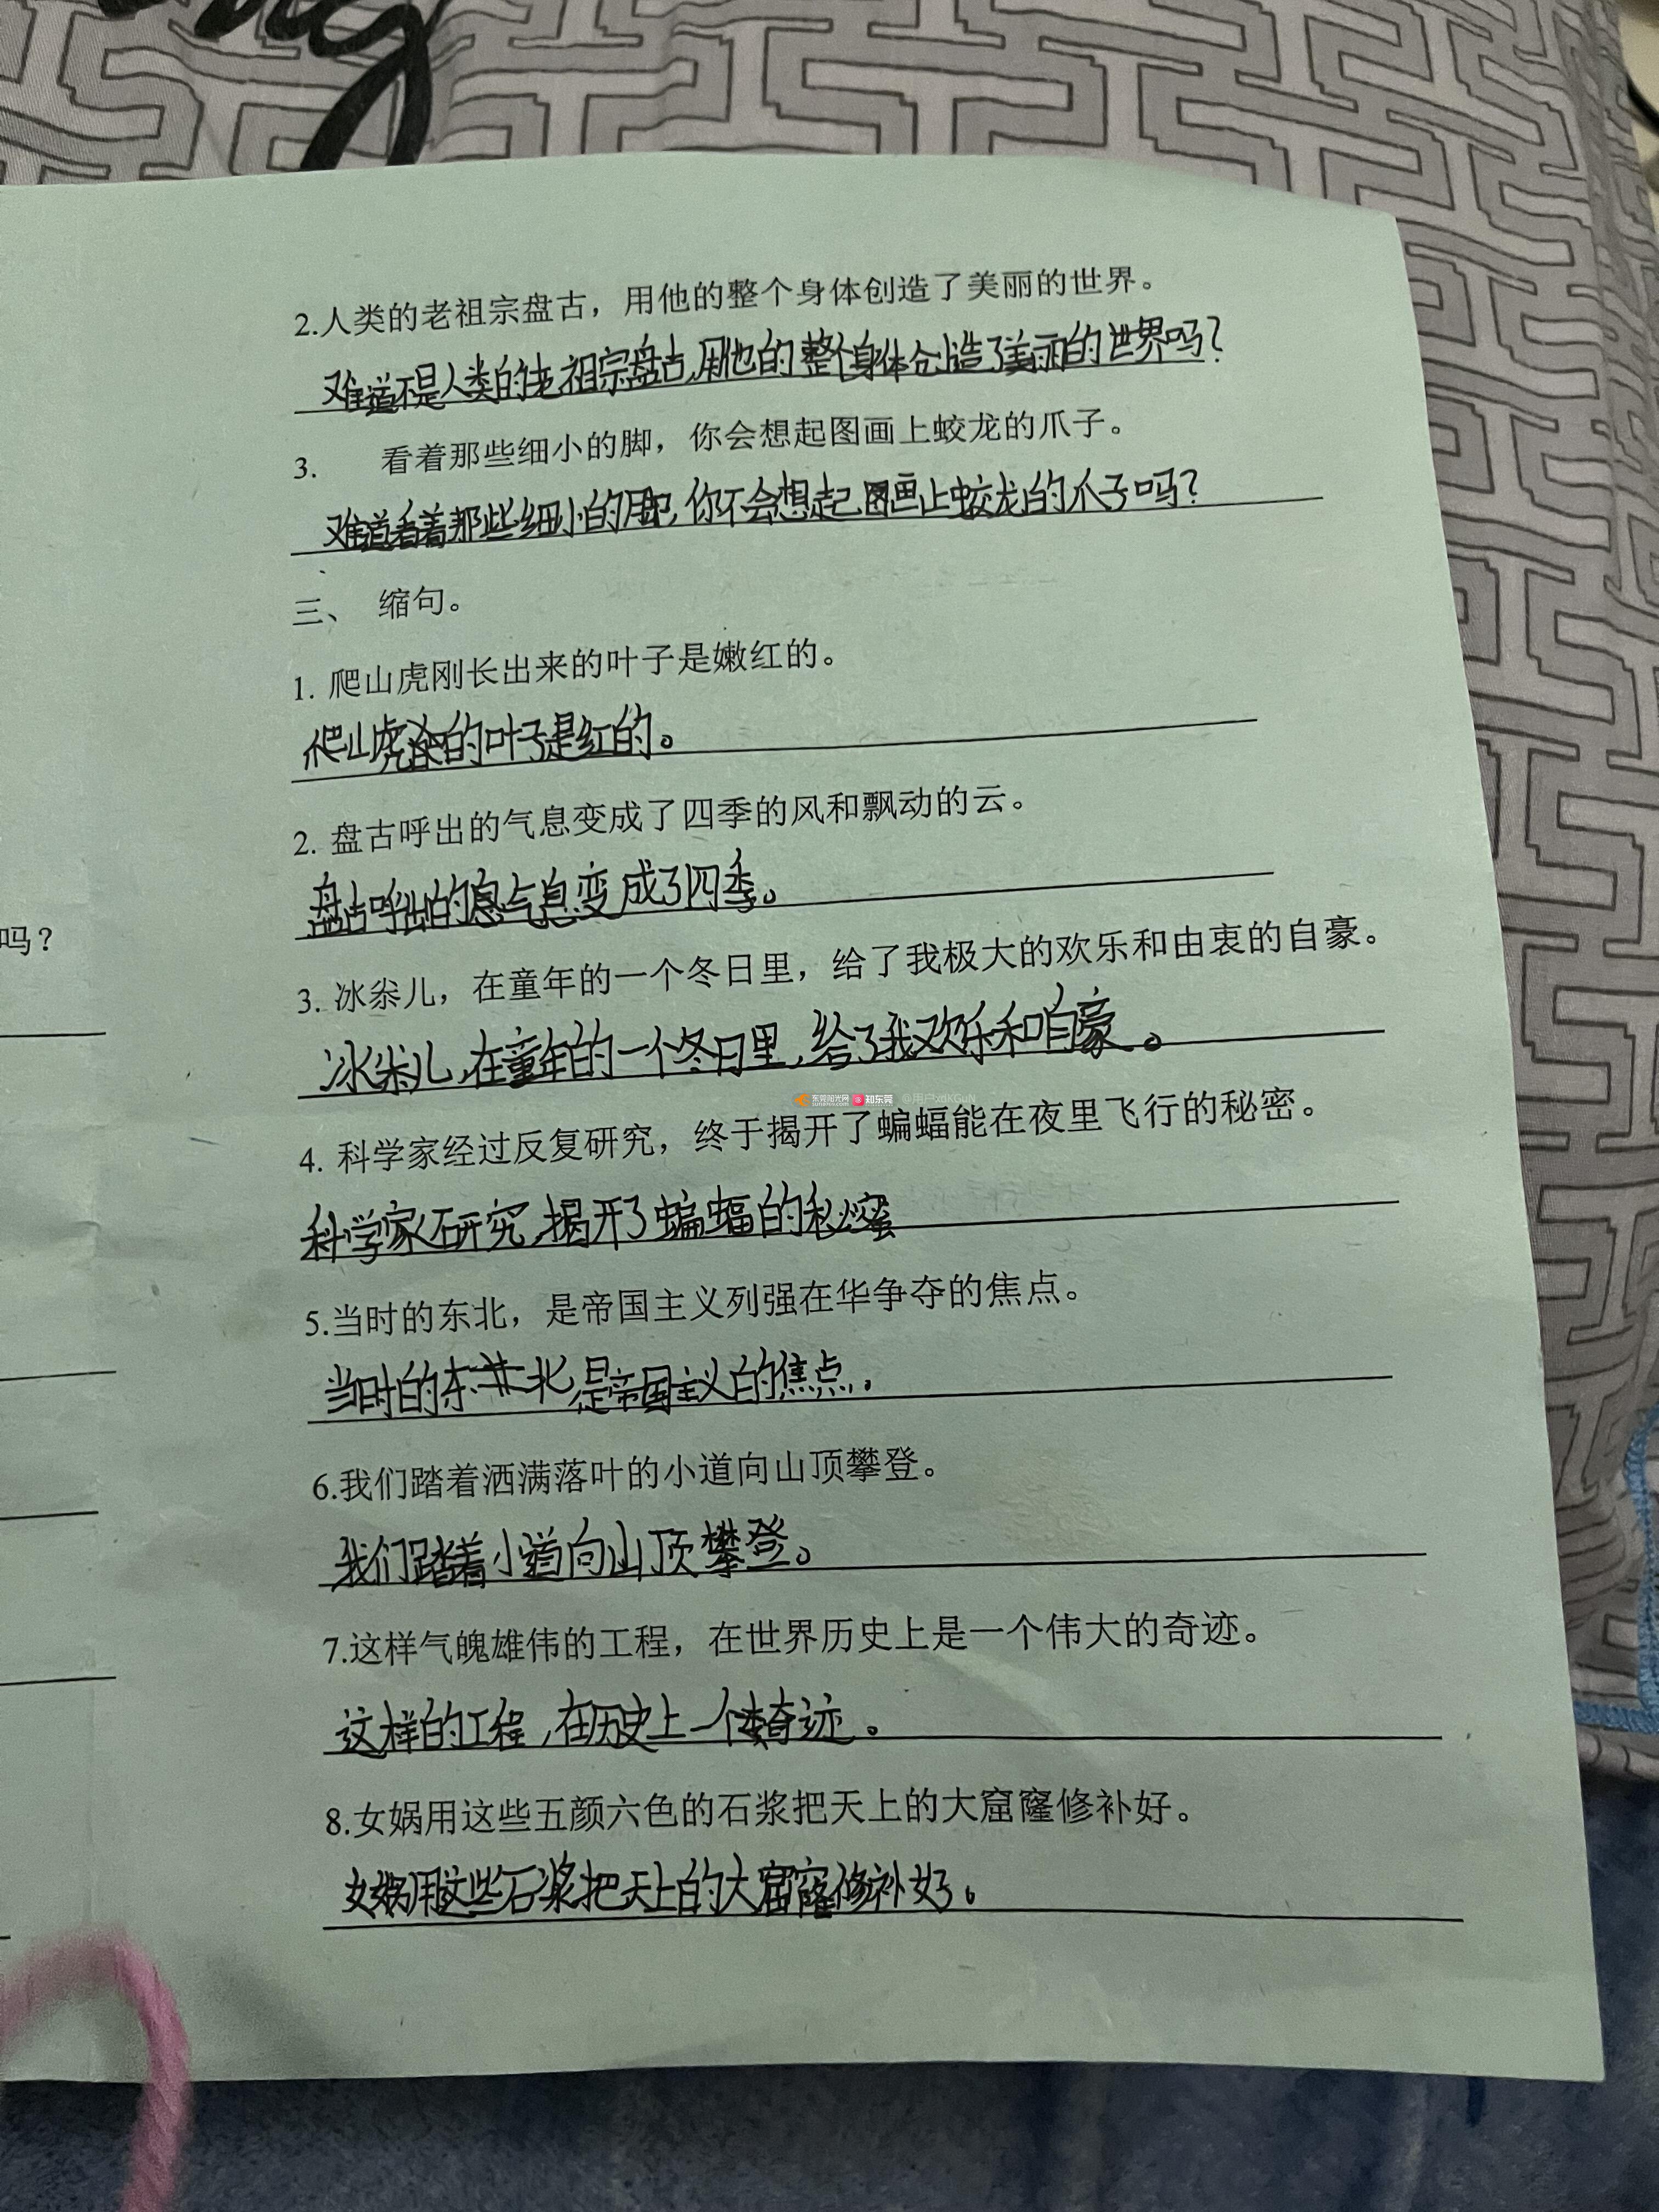 ng
2.人类的老祖宗盘古，用他的整个身体创造了美丽的世界。
难道不是人类的老祖宗盘古,用他的整个身体创造了美丽的世界吗?
3. 看着那些细小的脚，你会想起图画上蛟龙的爪子。
难道看着那些细小的脚,你不会想起图画上蛟龙的爪子吗?
三、 缩句。
1. 爬山虎刚长出来的叶子是嫩红的。
爬山虎的叶子是红的。
2. 盘古呼出的气息变成了四季的风和飘动的云。
盘古呼出的气息变成了四季。
吗？
3. 冰尜儿，在童年的一个冬日里，给了我极大的欢乐和由衷的自豪。
冰尜儿,在童年的一个冬日里,给了我欢乐和自豪。
东莞阳光网 知东莞 @用户xdKGuN
4. 科学家经过反复研究，终于揭开了蝙蝠能在夜里飞行的秘密。
科学家研究,揭开了蝙蝠的秘密
5.当时的东北，是帝国主义列强在华争夺的焦点。
当时的东北是帝国主义的焦点.
6.我们踏着洒满落叶的小道向山顶攀登。
我们踏着小道向山顶攀登。
7.这样气魄雄伟的工程，在世界历史上是一个伟大的奇迹。
这样的工程,在历史上一个奇迹。
8.女娲用这些五颜六色的石浆把天上的大窟窿修补好。
女娲用这些石浆把天上的大窟窿修补好。